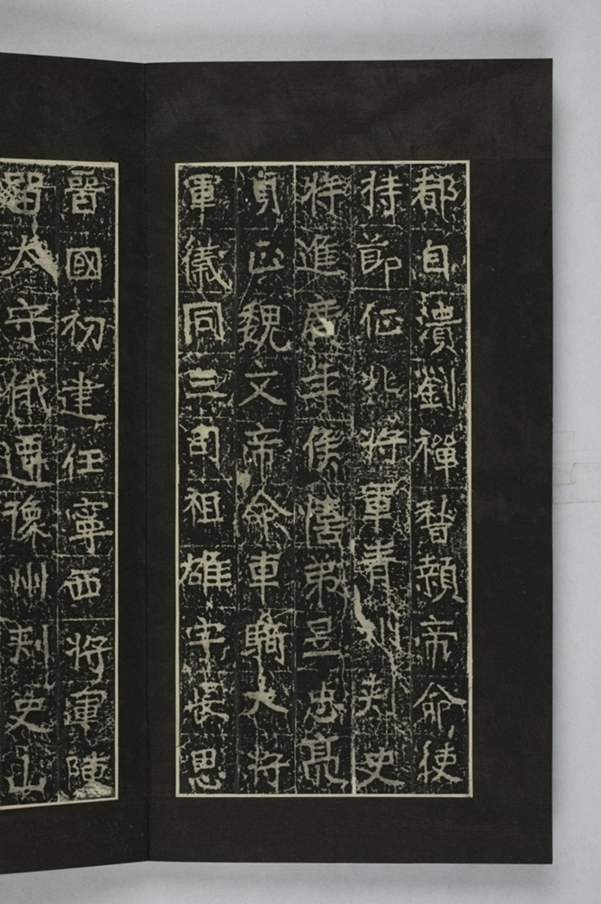 都自潰劉禪稽顙帝命使
持節征北將軍青州刺史
特進廣年侯憘弟昱忠亮
貞正魏文帝命車騎大將
軍儀同三司祖雄字長思
晉國初建任寧西將軍陳
留太守咸遷豫州刺史山